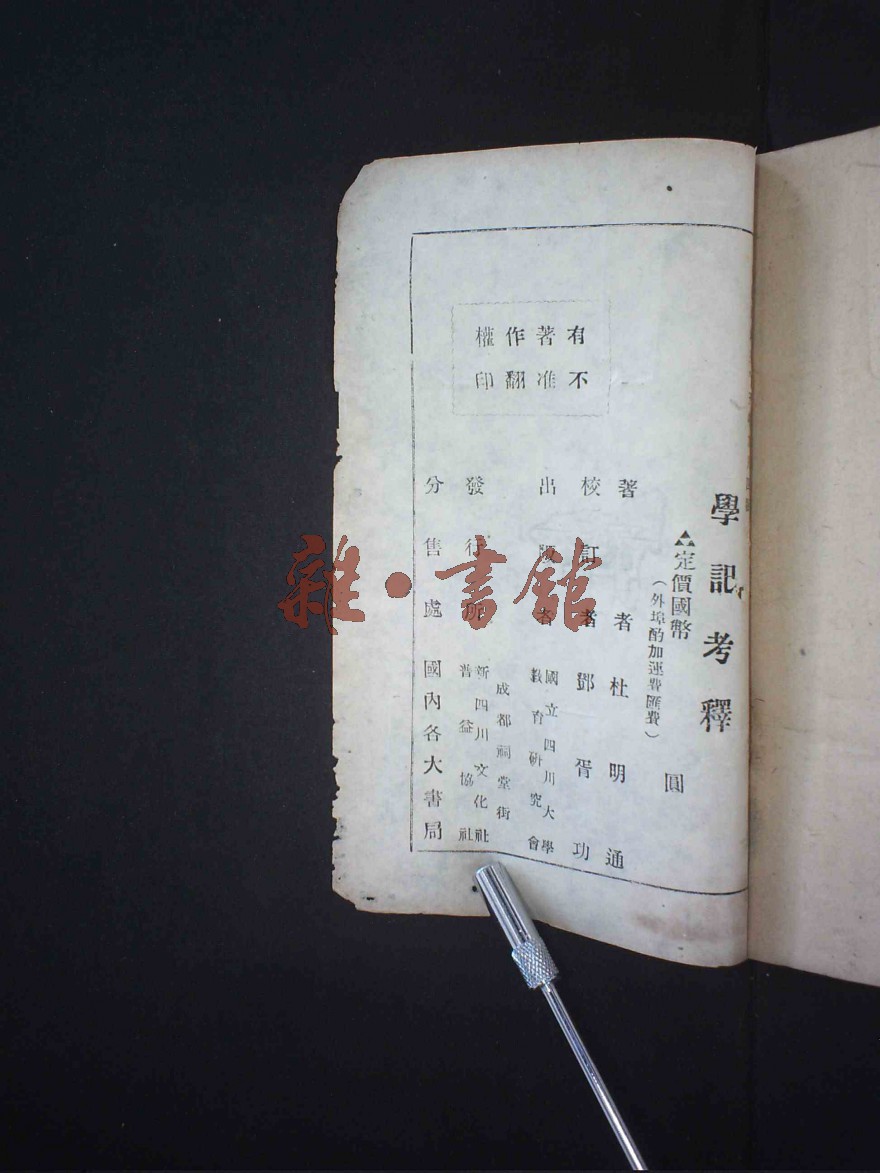 學記考釋
▲定價國幣 圓
(外埠酌加運費匯費)
著者 杜明通
校訂者 鄧胥功
出版者 國立四川大學
教育研究會
成都祠堂街
發行所 新四川文化社
普益協社
分售處 國內各大書局
有著作權
不准翻印
雜·書館